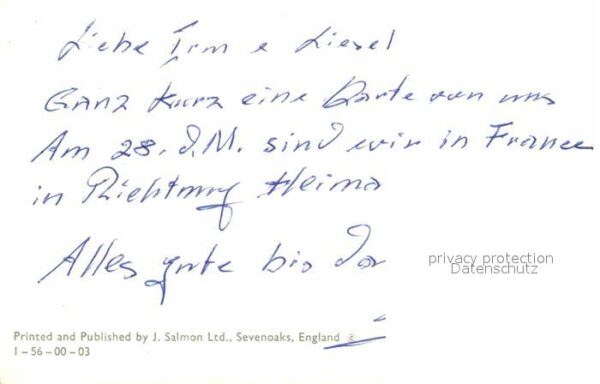 Liebe Irm e Liesel
Ganz kurz eine Karte von uns
Am 28. d.M. sind wir in France
in Richtung Heima
Alles gute bis da
privacy protection
Datenschutz
Printed and Published by J. Salmon Ltd., Sevenoaks, England ©
1-56-00-03